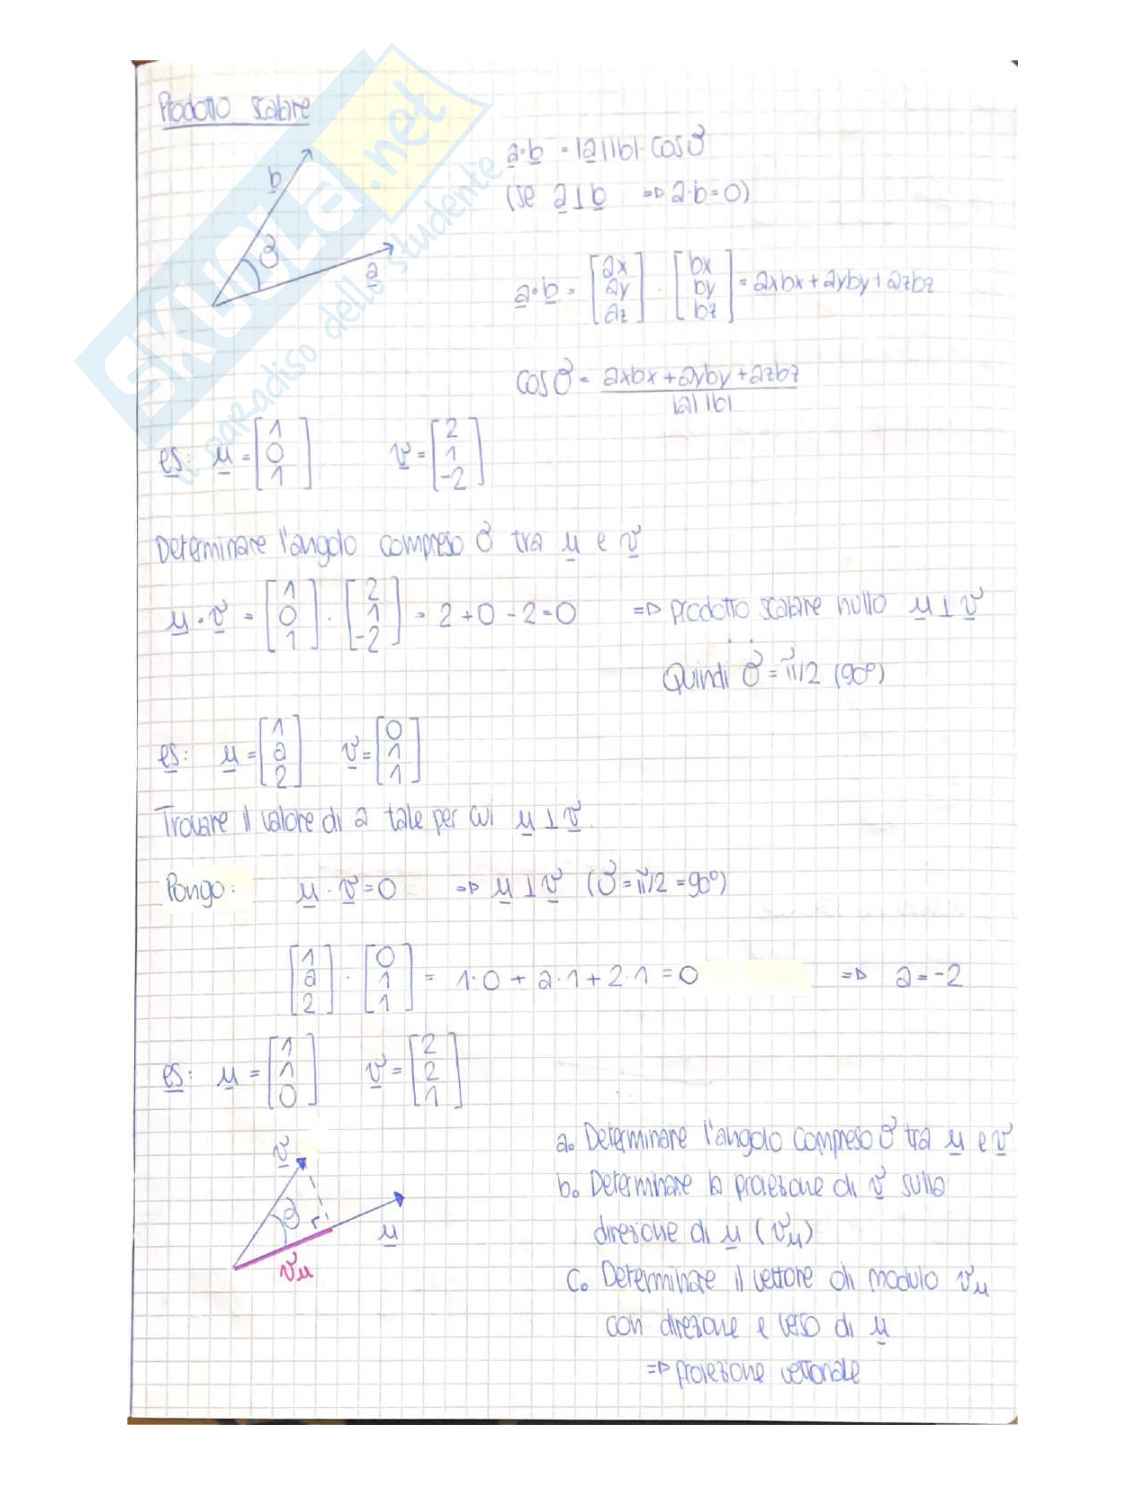 Prodotto scalare
b
θ
a
a · b = |a||b| · cosθ
(se a ⊥ b => a·b=0)
a · b = [ax ay az] · [bx by bz] = axbx + ayby + azbz
cosθ = axbx + ayby + azbz / |a||b|
es: u = [1 0 1] v = [2 1 -2]
Determinare l'angolo compreso θ tra u e v
u · v = [1 0 1] · [2 1 -2] = 2 + 0 - 2 = 0 => prodotto scalare nullo u ⊥ v
Quindi θ = π/2 (90°)
es: u = [1 a 2] v = [0 1 1]
Trovare il valore di a tale per cui u ⊥ v.
Pongo: u · v = 0 => u ⊥ v (θ = π/2 = 90°)
[1 a 2] · [0 1 1] = 1·0 + a·1 + 2·1 = 0 => a = -2
es: u = [1 1 0] v = [2 2 1]
v
θ
u
vu
a. Determinare l'angolo compreso θ tra u e v
b. Determinare la proiezione di v sulla
direzione di u (vu)
c. Determinare il vettore di modulo vu
con direzione e verso di u
=> proiezione vettoriale
SKUOLA.net
il paradiso dello studente